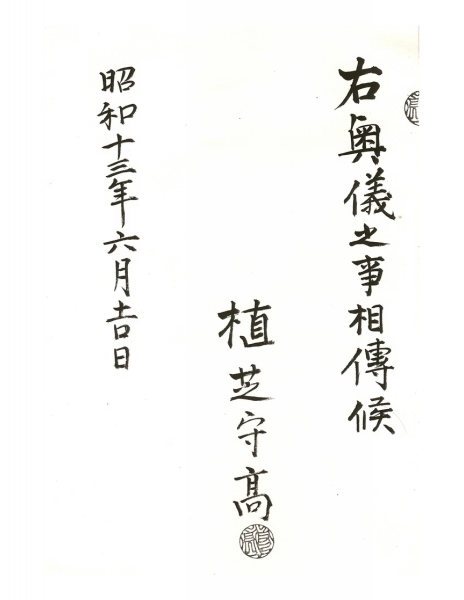 右奥儀之事相傳候
植芝守高
昭和十三年六月吉日